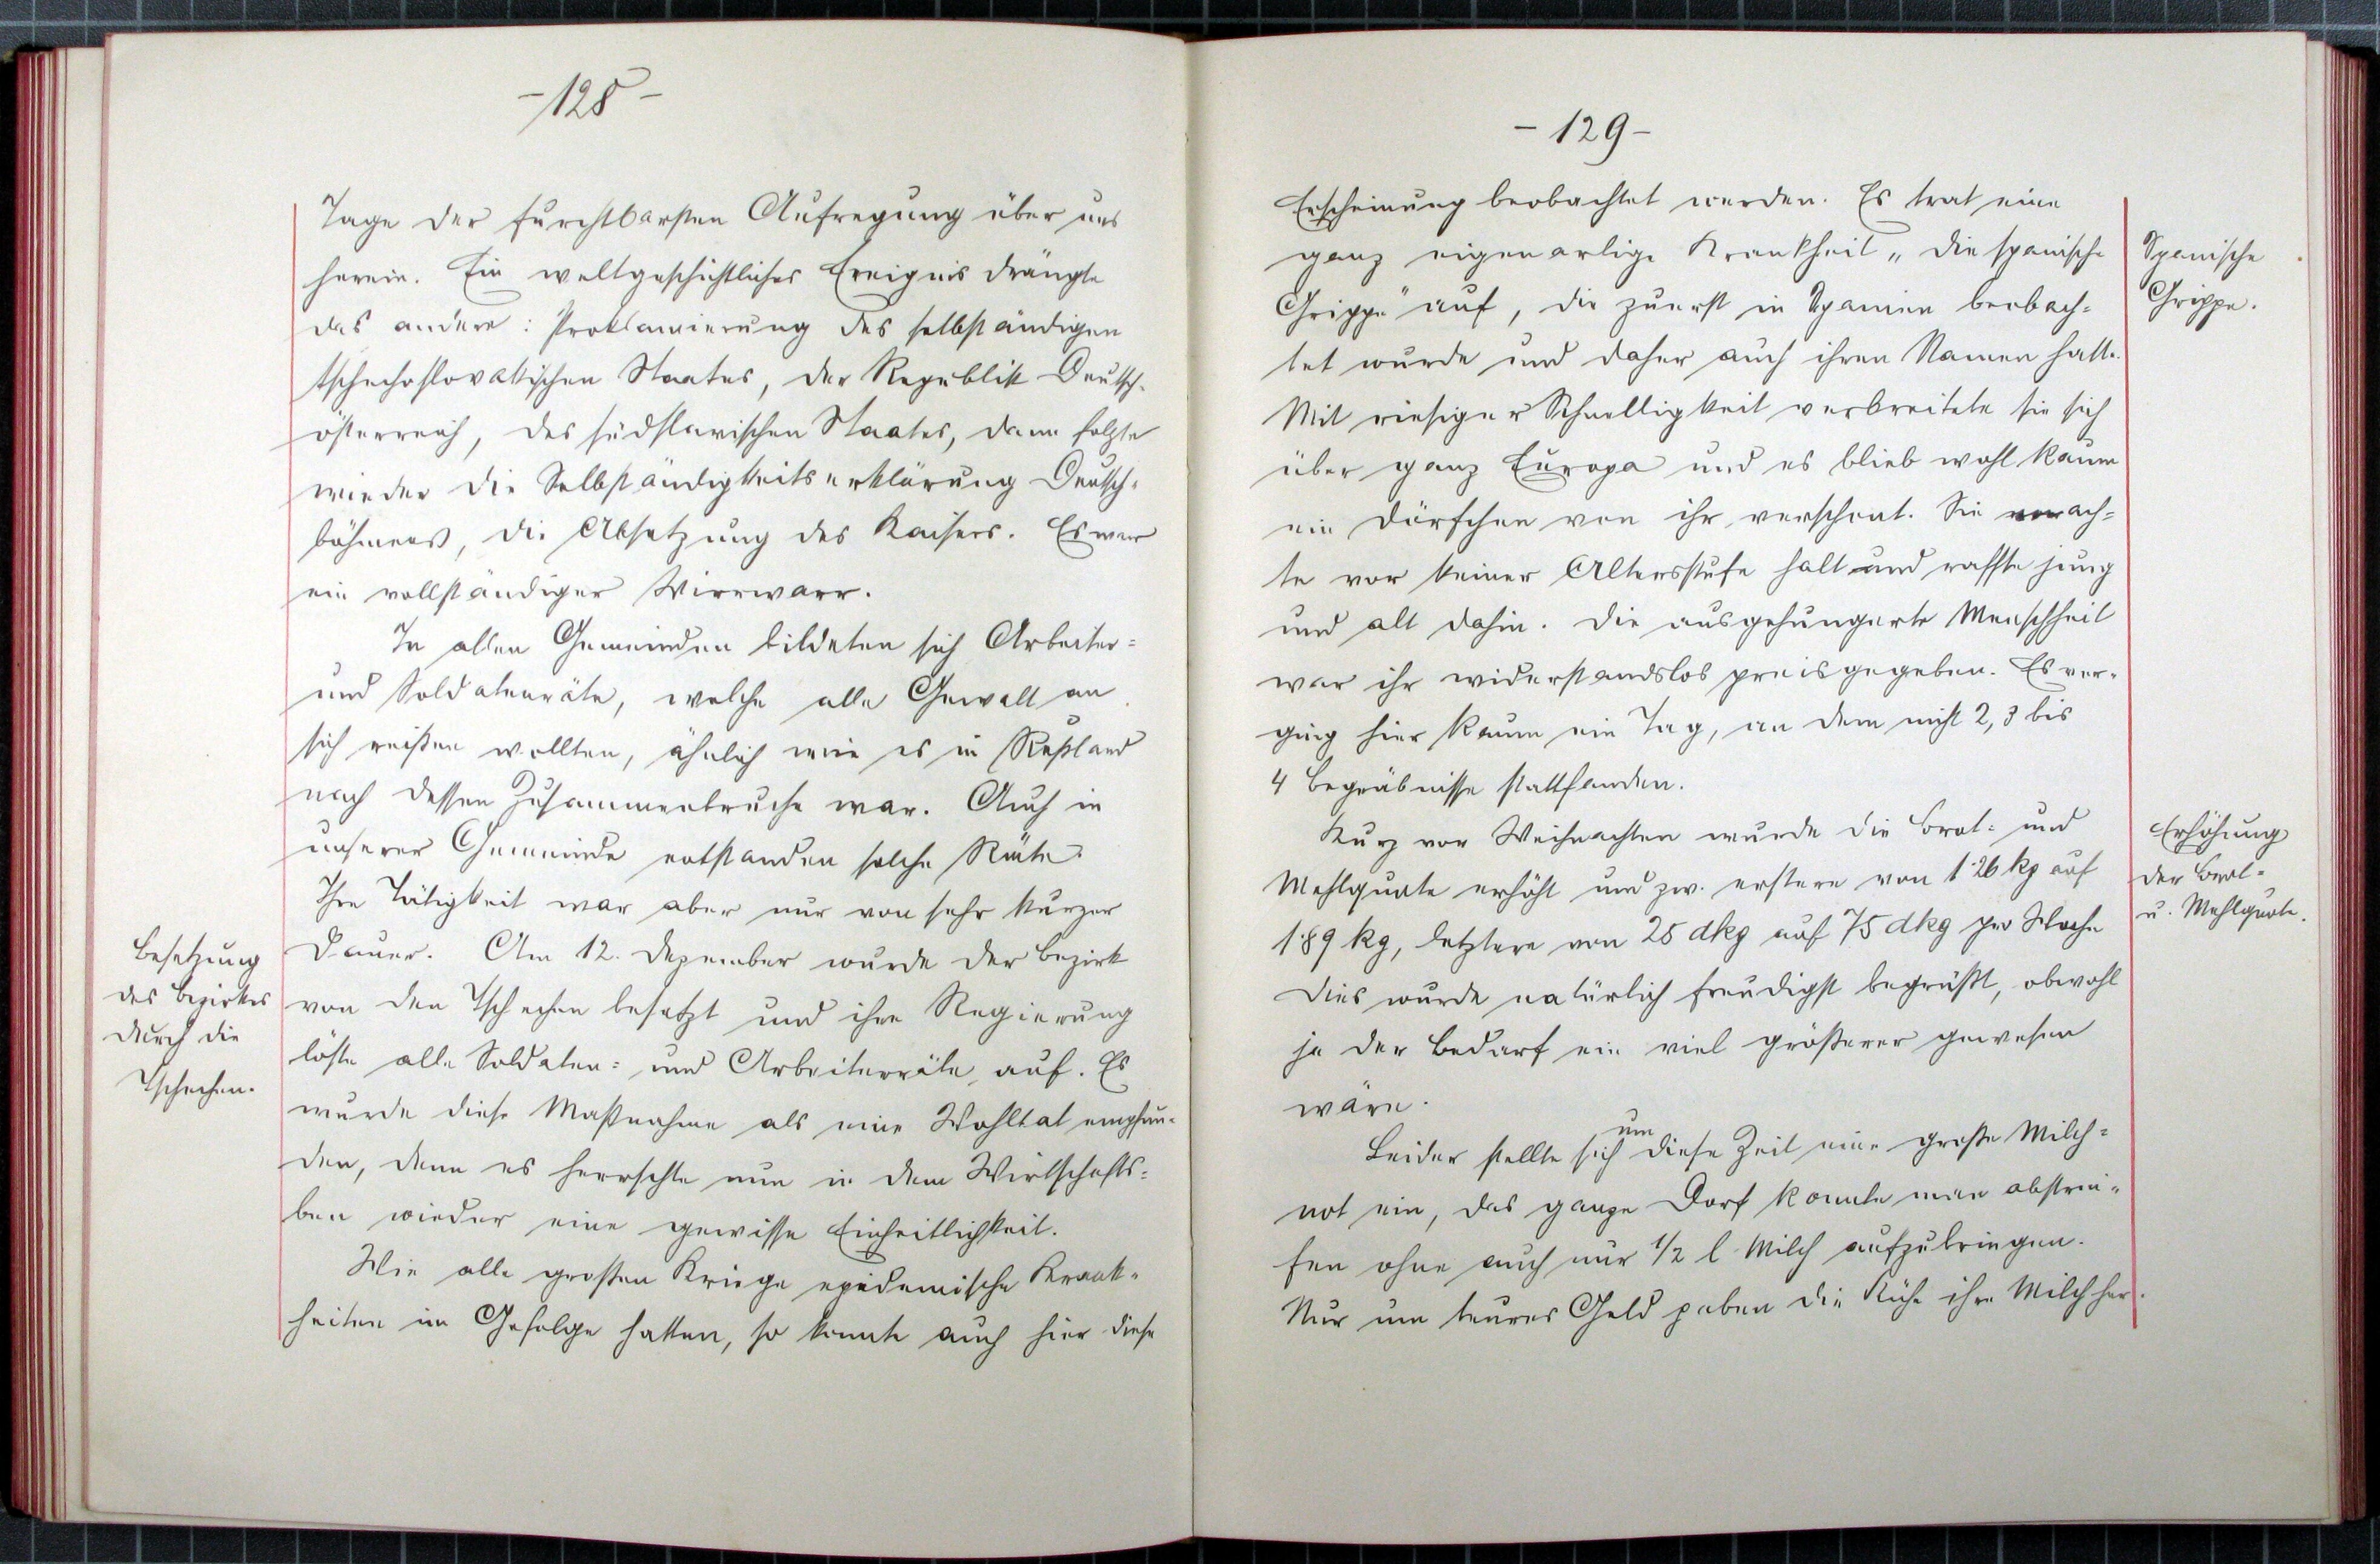 -128-
Tage der furchtbarsten Aufregung über uns
herein. Ein weltgeschichtliches Ereignis drängte
das andere: Proklamierung des selbständigen
tschechoslovakischen Staates, der Republik Deutsch-
österreich, des südslavischen Staates, dann folgte
wieder die Selbständigkeitserklärung Deutsch-
böhmens, die Absetzung des Kaisers. Es war
ein vollständiger Wirrwarr.
In allen Gemeinden bildeten sich Arbeiter-
und Soldatenräte, welche alle Gewalt an
sich reißen wollten, ähnlich wie es in Rußland
nach dessen Zusammenbruche war. Auch in
unserer Gemeinde entstanden solche Räte.
Ihre Tätigkeit war aber nur von sehr kurzer
Dauer. Am 12. Dezember wurde der Bezirk
von den Tschechen besetzt und ihre Regierung
löste alle Soldaten- und Arbeiterräte auf. Es
wurde diese Maßnahme als eine Wohltat empfun-
den, denn es herrschte nun in dem Wirtschafts-
ben wieder eine gewisse Einheitlichkeit.
Wie alle großen Kriege epidemische Krank-
heiten im Gefolge hatten, so konnte auch hier diese
Besetzung
des Bezirkes
durch die
Tschechen.
-129-
Erscheinung beobachtet werden. Es trat eine
ganz eigenartige Krankheit „die spanische
Grippe" auf, die zuerst in Spanien beobach-
tet wurde und daher auch ihren Namen hatte.
Mit riesiger Schnelligkeit verbreitete sie sich
über ganz Europa und es blieb wohl kaum
ein Dörfchen von ihr verschont. Sie mach-
te vor keiner Altersstufe halt und raffte jung
und alt dahin. Die ausgehungerte Menschheit
war ihr widerstandslos preisgegeben. Es ver-
ging hier kaum ein Tag, an dem nicht 2, 3 bis
4 Begräbnisse stattfanden.
Kurz vor Weihnachten wurde die Brot- und
Mehlquote erhöht und zw. erstere von 1·26 kg auf
1·89 kg, letztere von 25 dkg auf 75 dkg pro Woche
Dies wurde natürlich freudigst begrüßt, obwohl
ja der Bedarf ein viel größerer gewesen
wäre.
Leider stellte sich um diese Zeit eine große Milch-
not ein, das ganze Dorf konnte man abstrei-
fen ohne auch nur 1/2 l Milch aufzubringen.
Nur um teures Geld gaben die Kühe ihre Milch her.
Spanische
Grippe.
Erhöhung
der Brot-
u. Mehlquote.